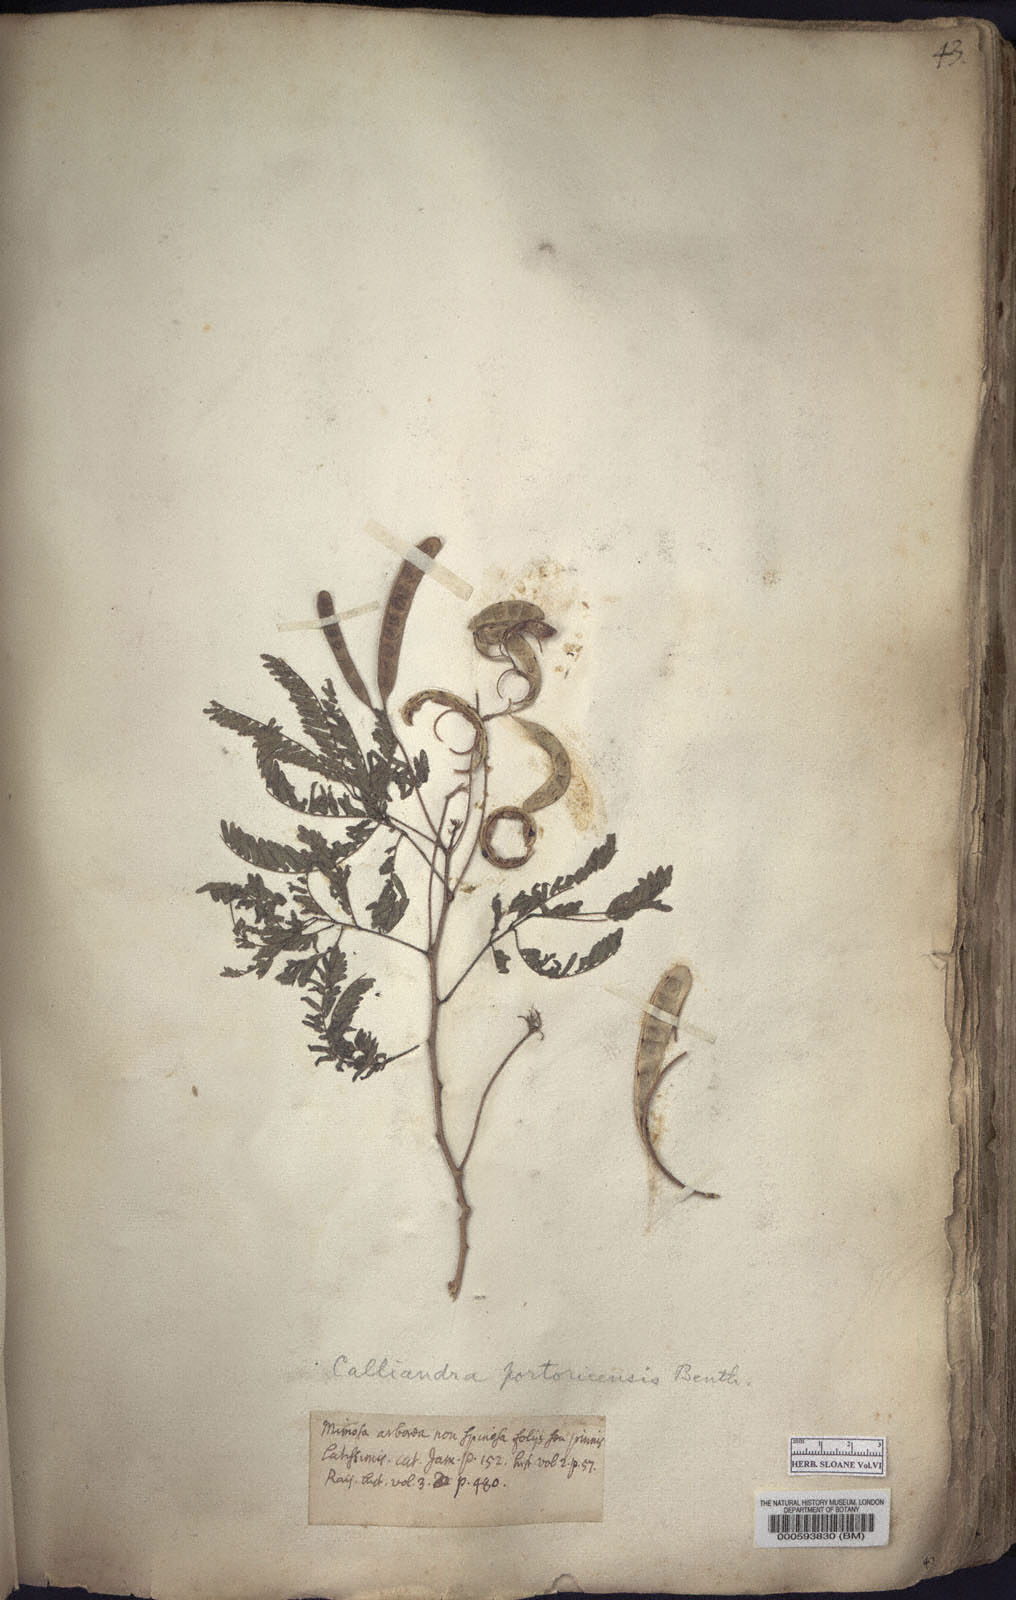 43.
Calliandra portoricensis Benth.
Mimosa arborea non spinosa folijs seu pinnis
Latissimis. cat. Jam. p. 152. hist. vol 2. p. 57.
Raij. hist. vol. 3. D p. 480.
mm 1 2 3
HERB. SLOANE Vol.VI
THE NATURAL HISTORY MUSEUM, LONDON
DEPARTMENT OF BOTANY
000593830 (BM)
43